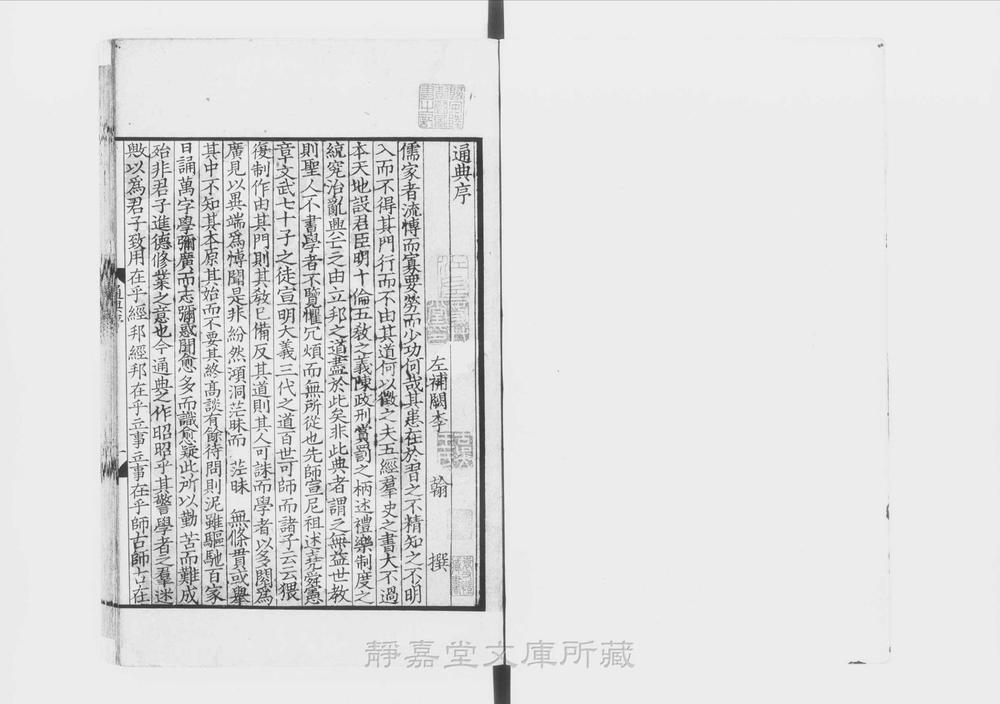 通典序
左補闕李　翰　撰
儒家者流博而寡要勞而少功何哉其患在於習之不精知之不明
入而不得其門行而不由其道何以徵之夫五經羣史之書大不過
本天地設君臣明十倫五敎之義陳政刑賞罰之柄述禮樂制度之
統究治亂興亡之由立邦之道盡於此矣非此典者謂之無益世教
則聖人不書學者不覽懼冗煩而無所從也先師宣尼祖述堯舜憲
章文武七十子之徒宣明大義三代之道百世可師而諸子云云猥
復制作由其門則其敎已備反其道則其人可誅而學者以多閱爲
廣見以異端爲博聞是非紛然澒洞茫昧而　茫昧　無條貫或舉
其中不知其本原其始而不要其終高談有餘待問則泥雖驅馳百家
日誦萬字學彌廣而志彌惑聞愈多而識愈疑此所以勤苦而難成
殆非君子進德修業之意也今通典之作昭昭乎其警學者之羣迷
歟以爲君子致用在乎經邦經邦在乎立事立事在乎師古師古在
靜嘉堂文庫所藏